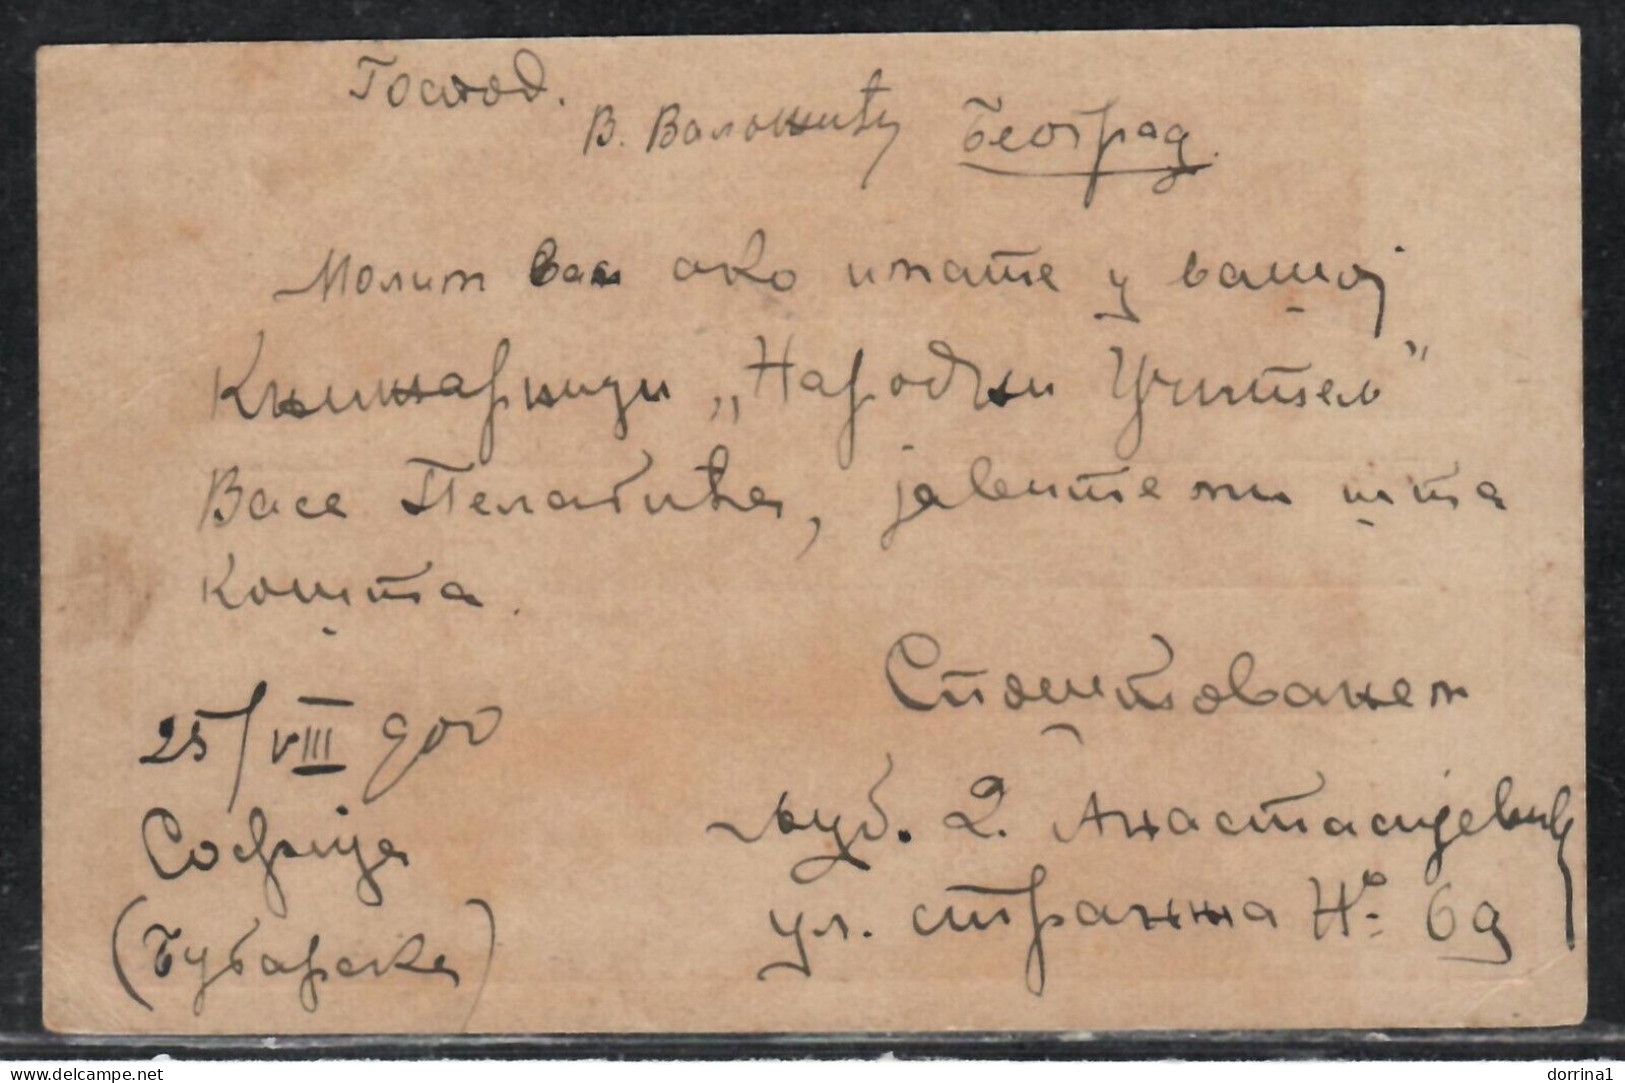 Господ.
В. Валожићу Београд.
Молим вас ако имате у вашој
Књижарници „Народни Учитељ"
Васе Пелагића, јавите ми шта
кошта.
Споштовањем
25/VIII 900
Љуб. Д. Анастасијевић
Софија
ул. Странџа № 69
(Бугарска)
www.delcampe.net
dorrina1